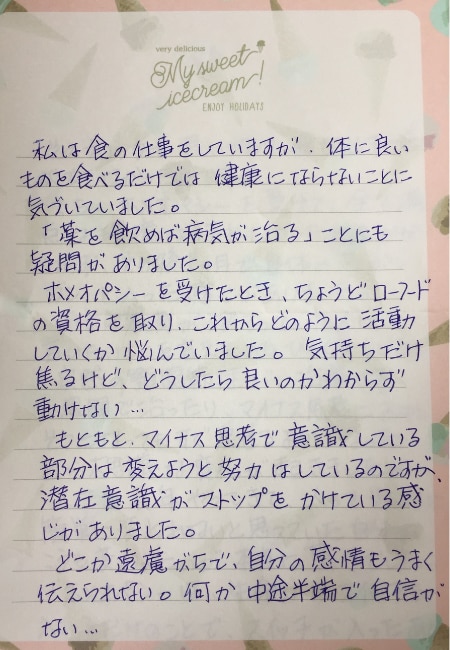 very delicious
My sweet
icecream!
ENJOY HOLIDAYS
私は食の仕事をしていますが、体に良い
ものを食べるだけでは健康にならないことに
気づいていました。
「薬を飲めば病気が治る」ことにも
疑問がありました。
ホメオパシーを受けたとき、ちょうどローフード
の資格を取り、これからどのように活動
していくか悩んでいました。気持ちだけ
焦るけど、どうしたら良いのかわからず
動けない…
もともと、マイナス思考で意識している
部分は変えようと努力はしているのですが、
潜在意識がストップをかけている感
じがありました。
どこか遠慮がちで、自分の感情もうまく
伝えられない。何か中途半端で自信が
ない…